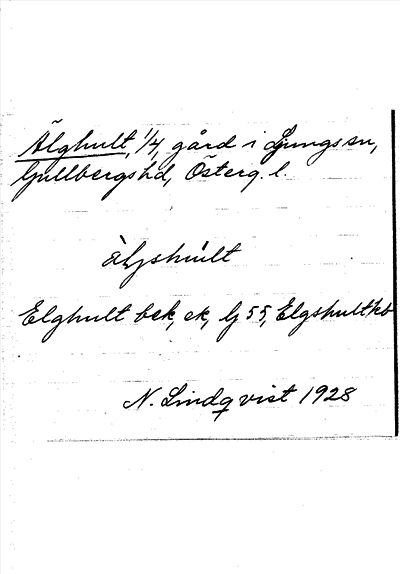 Älghult, 1/4, gård i Ljungs sn,
Gullbergs hd, Österg. l.
àl̥jshúlt
Elghult bek, ek, lj 55, Elgshult kb
N. Lindqvist 1928